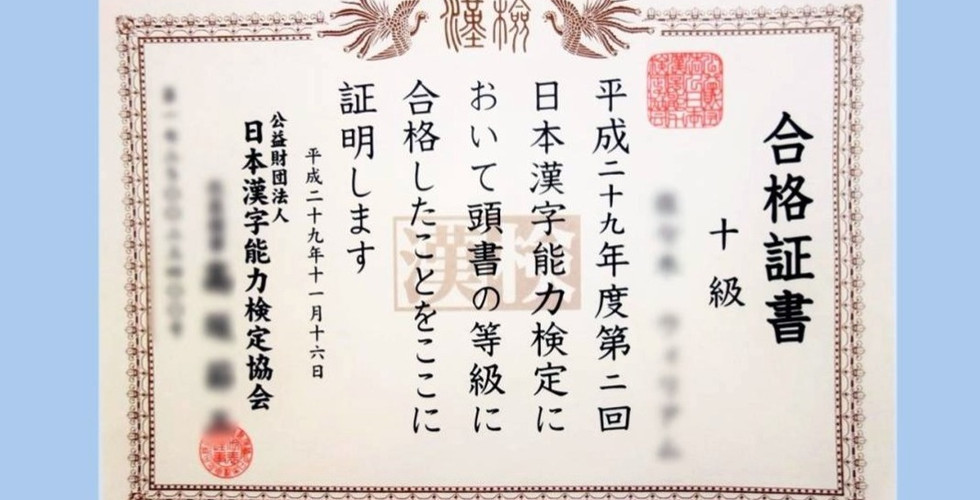 漢検
合格証書
十級
平成二十九年度第二回
日本漢字能力検定に
おいて頭書の等級に
合格したことをここに
証明します
漢検
平成二十九年十一月十六日
公益財団法人
日本漢字能力検定協会